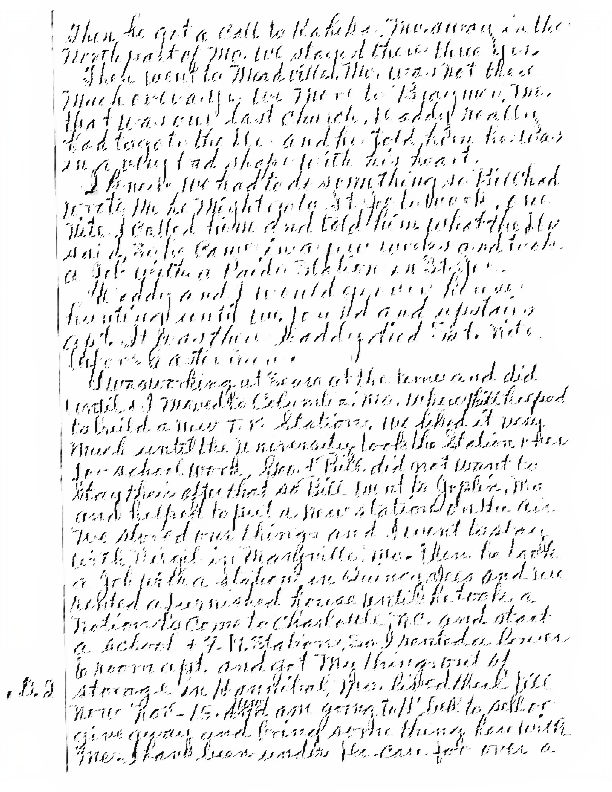 Then he got a call to Kahoka Missouri in the
North part of Mo. We stayed there three yrs.
Then went to Meadville, Mo. was not there
much over a yr. we move to Braymer, Mo.
that was our last Church. Daddy really
had to go to the Dr. and he told him he was
in a very bad shape with his heart.
I knew we had to do something so Bill had
wrote me he might go to St. Joe to work, one
nite I called him and told him what the Dr.
said. So he came in a few weeks and took
a job with a Radio Station in St. Joe.
Daddy and I would go over house
hunting until we found and upstairs
apt. It was there Daddy died Sat. nite
before Easter
I was working at Sears at the time and did
until I moved to Columbia, Mo. where Bill helped
to build a new T.V. Station. We liked it very
much until the University took the Station over
for school work, Bill did not want to
stay their after that so Bill went to Joplin, Mo
and helped to put a new station on the air
We stored our things and I went to stay
with Virgil in Maryville, Mo. Then he took
a job with a station in Quincy and we
rented a furnished house until he took a
notion to come to Charlotte, N.C. and start
a school + F.M. Station, So I rented a
room apt. and got my things out of
storage in Hannibal, Mo. lived there till
now Nov-15. am going to sell or
give away and bring some things here with
me. I have been under Dr. care for over a